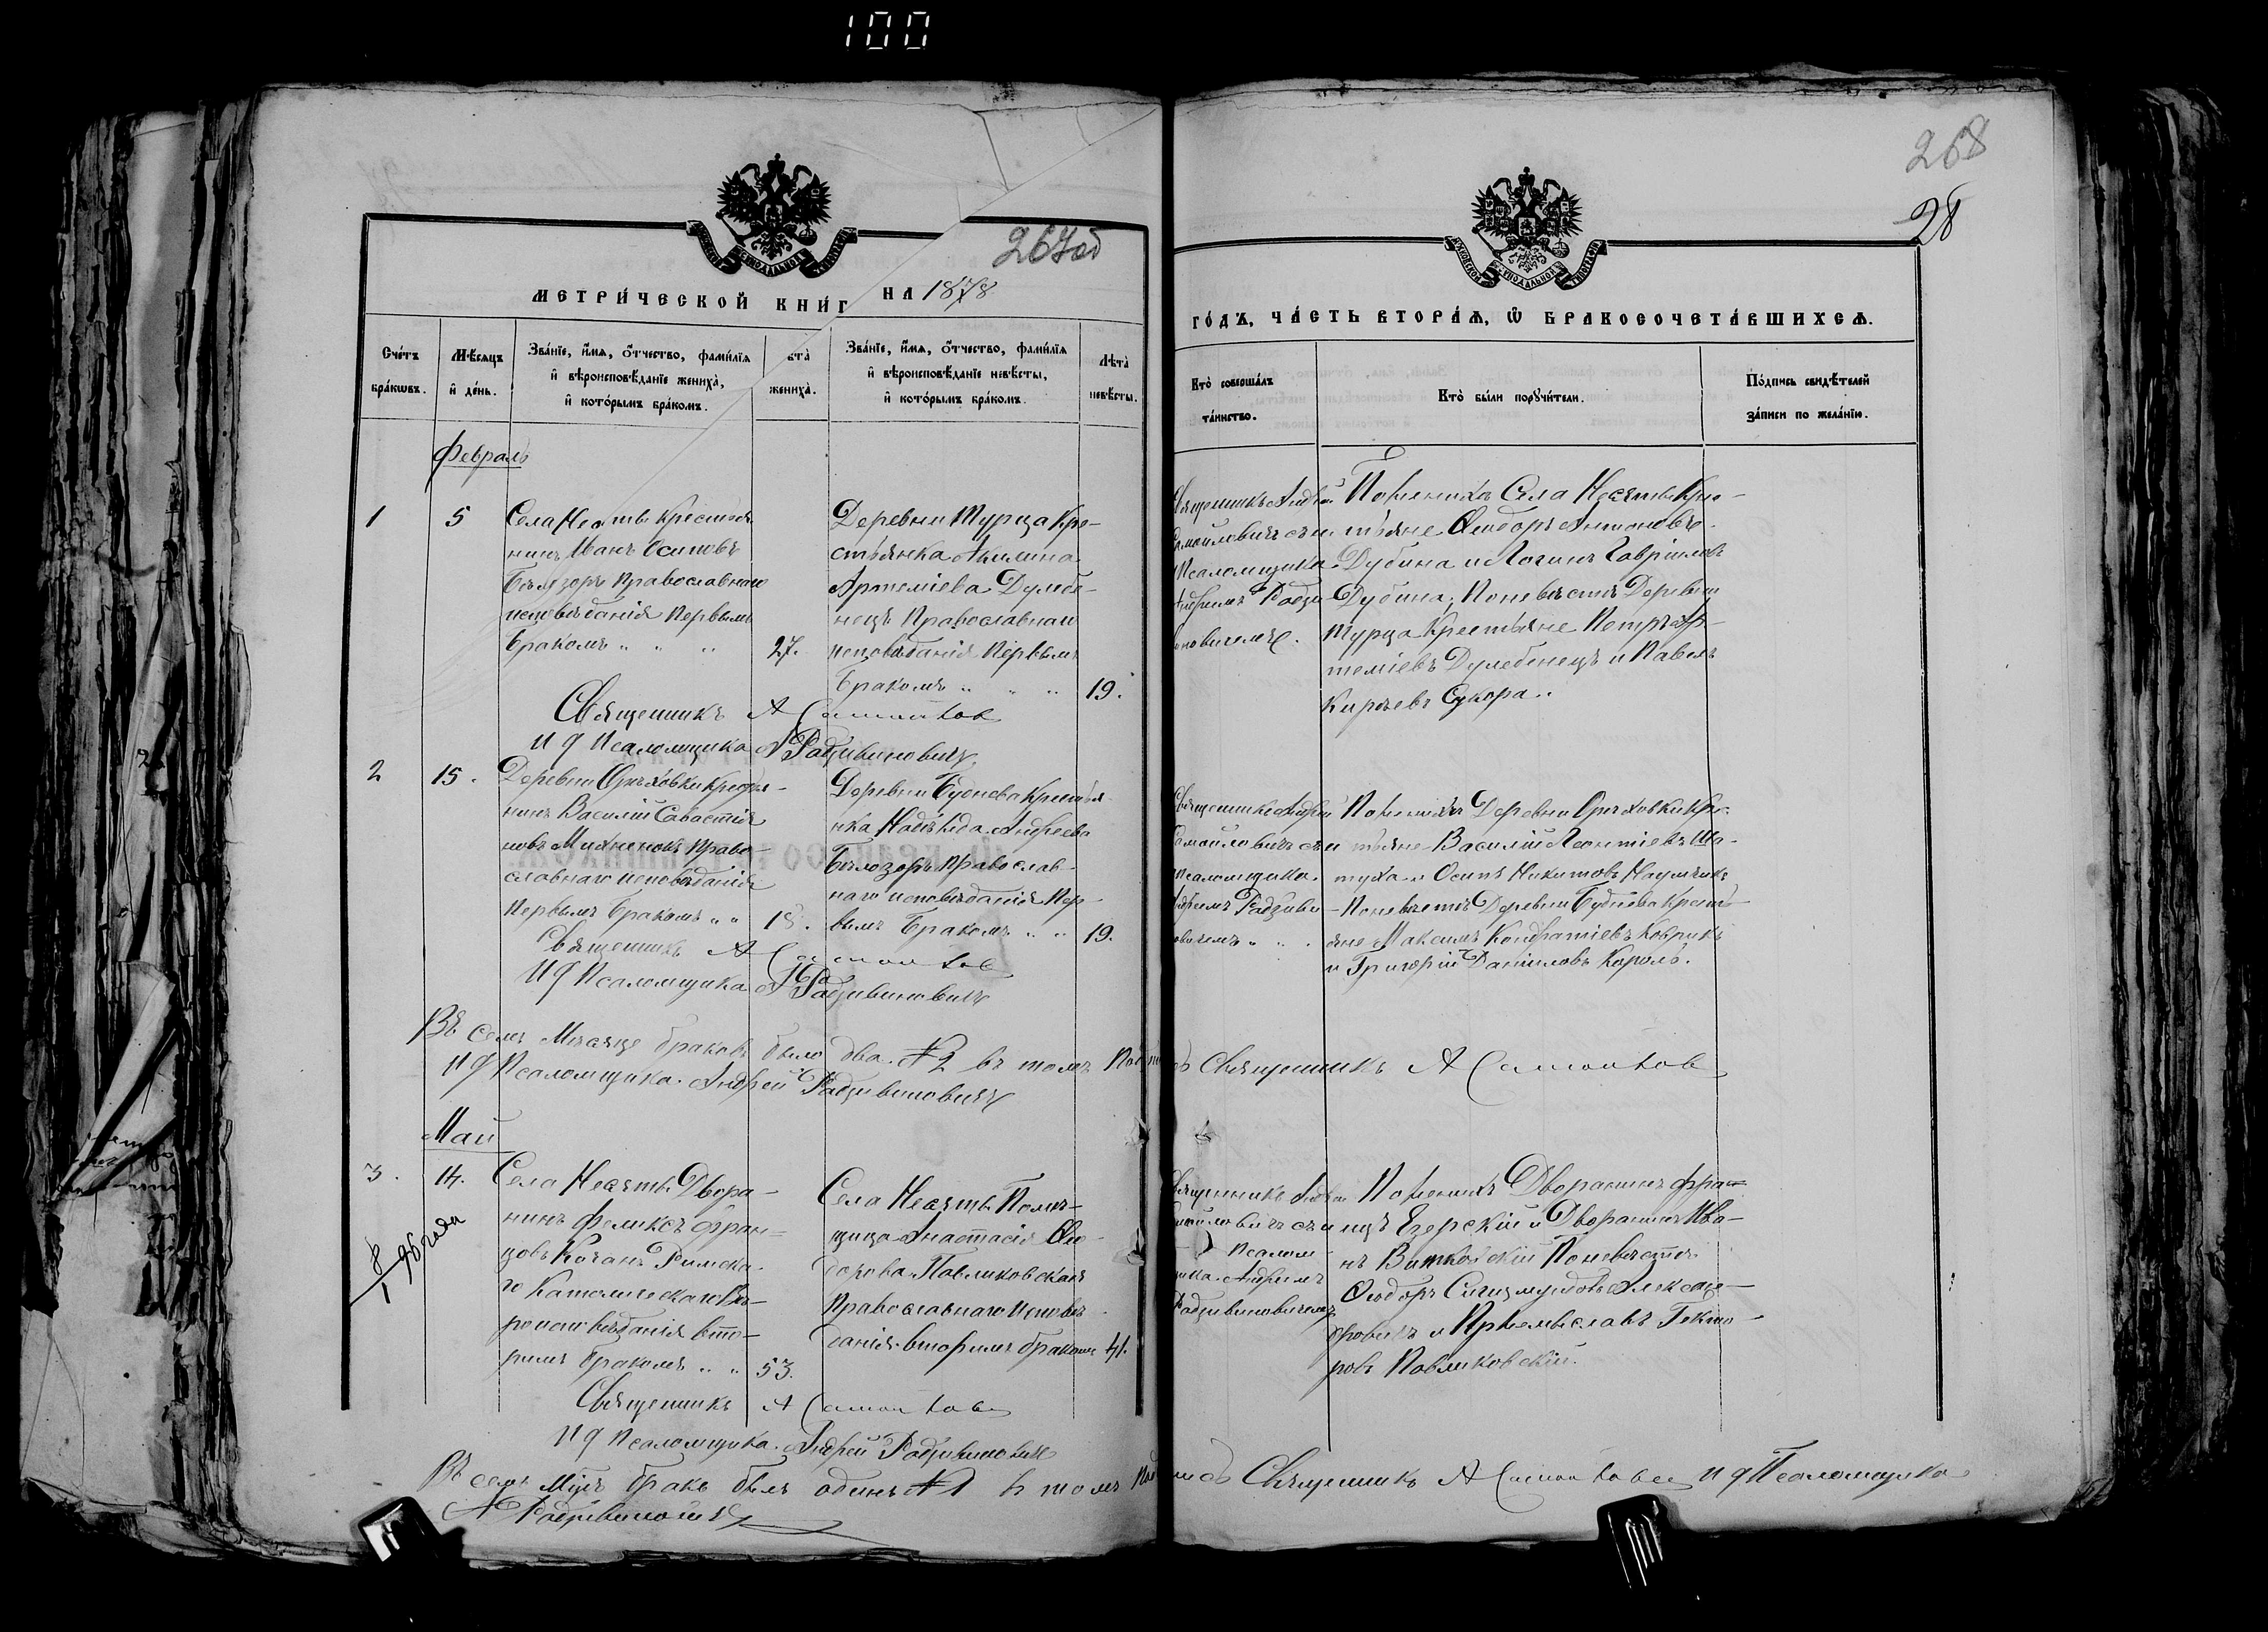 100
268
28
267об
МЕТРИ́ЧЕСКОЙ КНИ́Г НА 1878
ГО́ДЪ, ЧА́СТЬ ВТОРА́Я, Ѡ БРАКОСОЧЕТА́ВШИХСЯ.
Сче́тъ бра́кѡвъ.
Мѣ́сяцъ и҆ де́нь.
Зва́нїе, и҆́мя, ѻ҆́тчество, фами́лїя
и҆ вѣроисповѣ́данїе жениха̀,
и҆ кото́рымъ бра́комъ.
ѣта̀ жениха̀.
Зва́нїе, и҆́мя, ѻ҆́тчество, фами́лїя
и҆ вѣроисповѣ́данїе невѣ́сты,
и҆ кото́рымъ бра́комъ.
Лѣта̀ невѣ́сты.
Кто̀ соверша́лъ та́инство.
Кто̀ бы́ли порꙋчи́тели.
По́дпись свидѣ́телей за́писи по жела́нїю.
Февраль
1
5
Села Несяты Крестья
нинъ Иванъ Осиповъ
Православнаго
исповѣданія Первымъ
бракомъ " " "
27.
Деревни Турца Кре-
стьянка Акилина
Артеміева Дулебе-
нецъ Православнаго
исповѣданія Первымъ
бракомъ " " "
19.
Священникъ Андрей
Самойловичъ съ и
Псаломщика
Андреемъ Радзи
виновичемъ.
По женихѣ Села Несяты Кре-
стьяне Ѳеодоръ Антоновъ
Дубина и Логинъ Гавріиловъ
Дубина; По невѣстѣ Деревни
Турца Крестьяне Петръ Ар-
теміевъ Дулебенецъ и Павелъ
Киреевъ Сукора..
Священникъ А Самойлов
И д Псаломщика А Радзивиновичъ
2
15.
Деревни Орѣховки Крестья-
нинъ Василій Савастія
новъ Михненокъ Право-
славнаго исповѣданія
Первымъ бракомъ " "
18.
Деревни Буднева Крестья
нка Надежда Андреева
Бѣлозоръ Православ-
наго исповѣданія Пер-
вымъ Бракомъ " "
19.
Священникъ Андрей
Самойловичъ съ и
псаломщика
Андреемъ Радзиви
овичемъ " "
По женихѣ Деревни Орѣховки Кре-
стьяне Василій Леонтіевъ Ша-
туха и Осипъ Никитовъ Наумчикъ
По невѣстѣ Деревни Буднева Кресть-
яне Максимъ Кондратіевъ Коврикъ
и Григорій Даніиловъ Король.
Священникъ А Самойлов
И д Псаломщика А Радзивиновичъ
Въ семъ Мѣсяце браковъ было два № 2 въ томъ Подписъ Священникъ А Самойлов
И д Псаломщика Андрей Радзивиновичъ
Май
3.
14.
8/1 96 года
Села Несяты Дворя-
нинъ Феликсъ Фран-
цовъ Кочанъ Римска-
го Католическаго Вѣ-
роисповѣданія вто-
рымъ бракомъ " "
53.
Села Несяты Помѣ-
щица Анастасія Ѳео
дорова Павликовская
Православнаго исповѣ-
данія вторымъ бракомъ
41.
Священникъ Андрей
Самойловичъ съ и
д Псалом
щика Андреемъ
Радзивиновичемъ
По женихѣ Дворянинъ Фран-
цъ Езерскій и Дворянинъ Ива-
нъ Витковскій По невѣстѣ
Ѳеодоръ Сигизмундовъ Алексан-
дровичъ и Пржемыславъ Гекто-
ровъ Павликовскій.
Священникъ А Самойлов
И д Псаломщика Андрей Радзивиновичъ
Въ семъ Мцѣ бракъ былъ одинъ № 1 въ томъ Подписъ Священникъ А Самойлов И д Псаломщика
А Радзивиновичъ